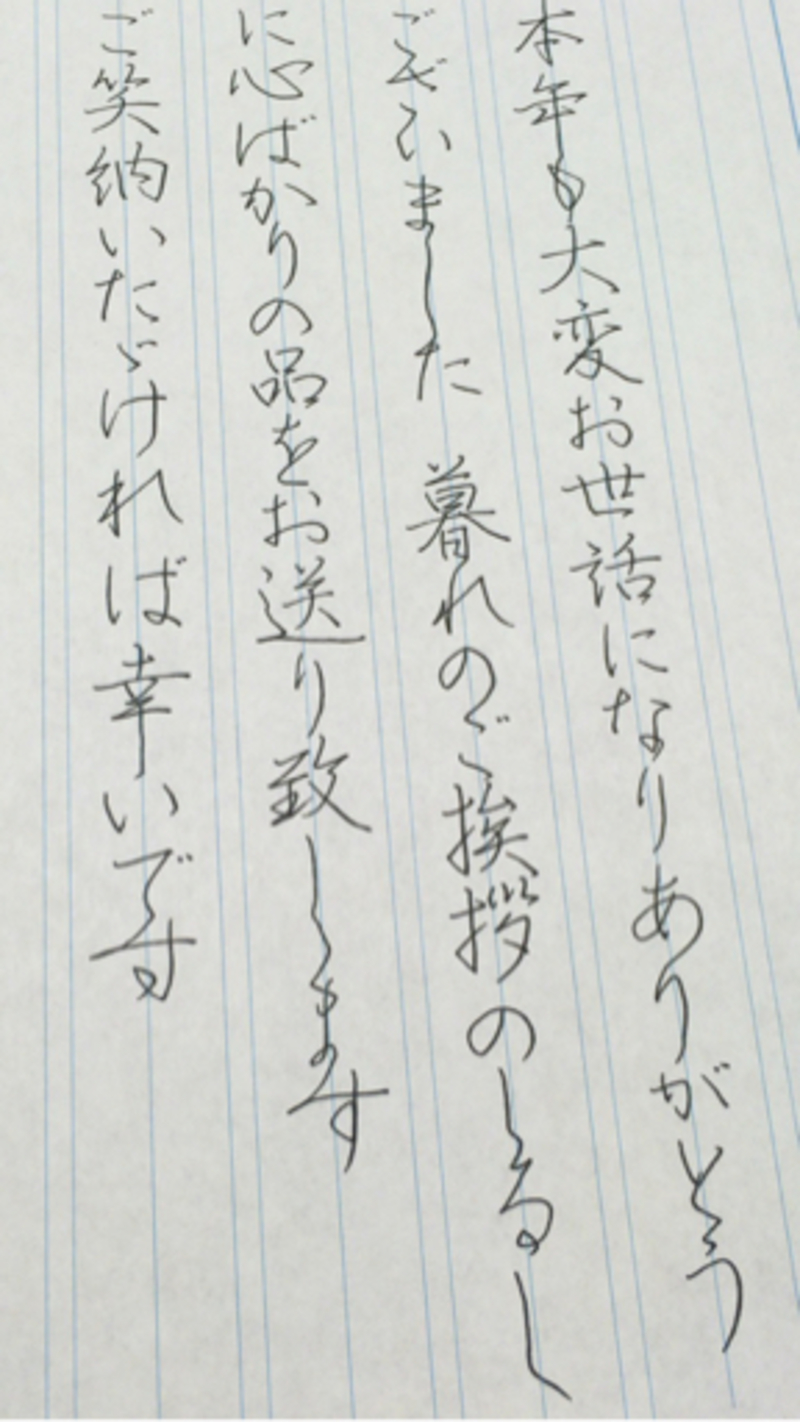 本年も大変お世話になりありがとう
ございました 暮れのご挨拶のしるし
に心ばかりの品をお送り致します
ご笑納いたゞければ幸いです